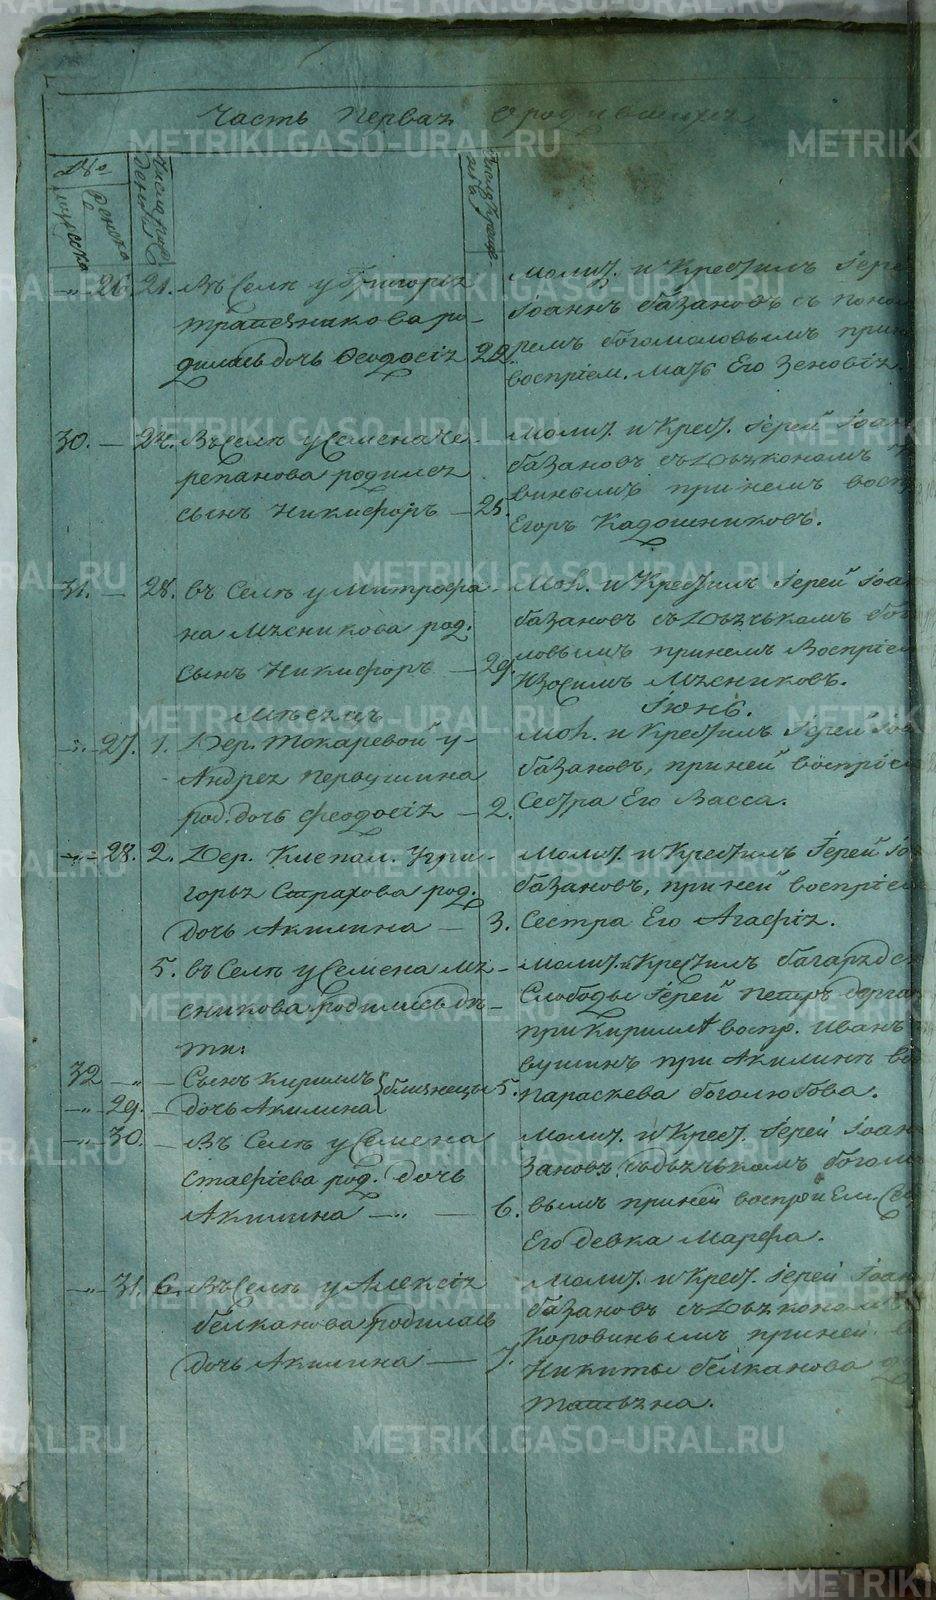 Часть Первая О родившихся
№
мужеска
женска
Числа рож
дения
26. 21. Въ Селѣ у Григорія
ро-
дилась дочь Ѳеодосія 22.
Молит. и Крестилъ Іере
Іоаннъ базановъ съ поно
ремъ богомоловымъ при
воспріем. Мать Его Зеновія.
30. — 24. Въ Селѣ у Семена Че-
репанова родился
сынъ Никифоръ — 25.
Молит. и Крест. Іерей Іоан
базановъ съ Дьякономъ
винымъ при немъ восп
Егоръ Кадошниковъ.
31. — 28. въ Селѣ у Митрофа-
на Мясникова род.
сынъ Никифоръ — 29.
Мол. и Крестилъ Іерей Іоан
базановъ съ Дьячькомъ бог
ловымъ при немъ Воспріем
Изосимъ Мясниковъ.
Мѣсяцъ Іюнь.
27. 1. Дер. Токаревой у
Андрея Первушина
род. дочь Феодосія — 2.
Мол. и Крестилъ Іерей Іоа
базановъ, при ней воспріем
Сестра Его Васса.
28. 2. Дер. Клепал. У Гри-
горья Страхова род.
дочь Акилина — 3.
Молит. и Крестилъ Іерей Іо
базановъ, при ней воспріем
Сестра Его Агафія.
5. въ Селѣ у Семена Мя-
сникова родились дѣ-
ти:
32 — „ — Сынъ Кириллъ
— „ — 29. — дочь Акилина близнецы 5.
Молит. и Крестилъ багарядск
Слободы Іерей Петръ
при Кириллѣ воспр. Иванъ
вушинъ при Акилинѣ во
Параскева боголюбова.
— „ — 30. — Въ Селѣ у Семена
Стафіева род. дочь
Акилина — „ — 6.
Молит. и Крест. Іерей Іоан
зановъ съ дьячькомъ богом
вымъ при ней воспрой Ем. Сес
Его девка Марфа.
— „ — 31. 6. Въ Селѣ у Алексія
белканова родилась
дочь Акилина — 7.
Молит. и Крест. Іерей Іоан
базановъ съ Дьякономъ
Коровинымъ при ней в
Никиты белканова
Татьяна.
METRIKI.GASO-URAL.RU